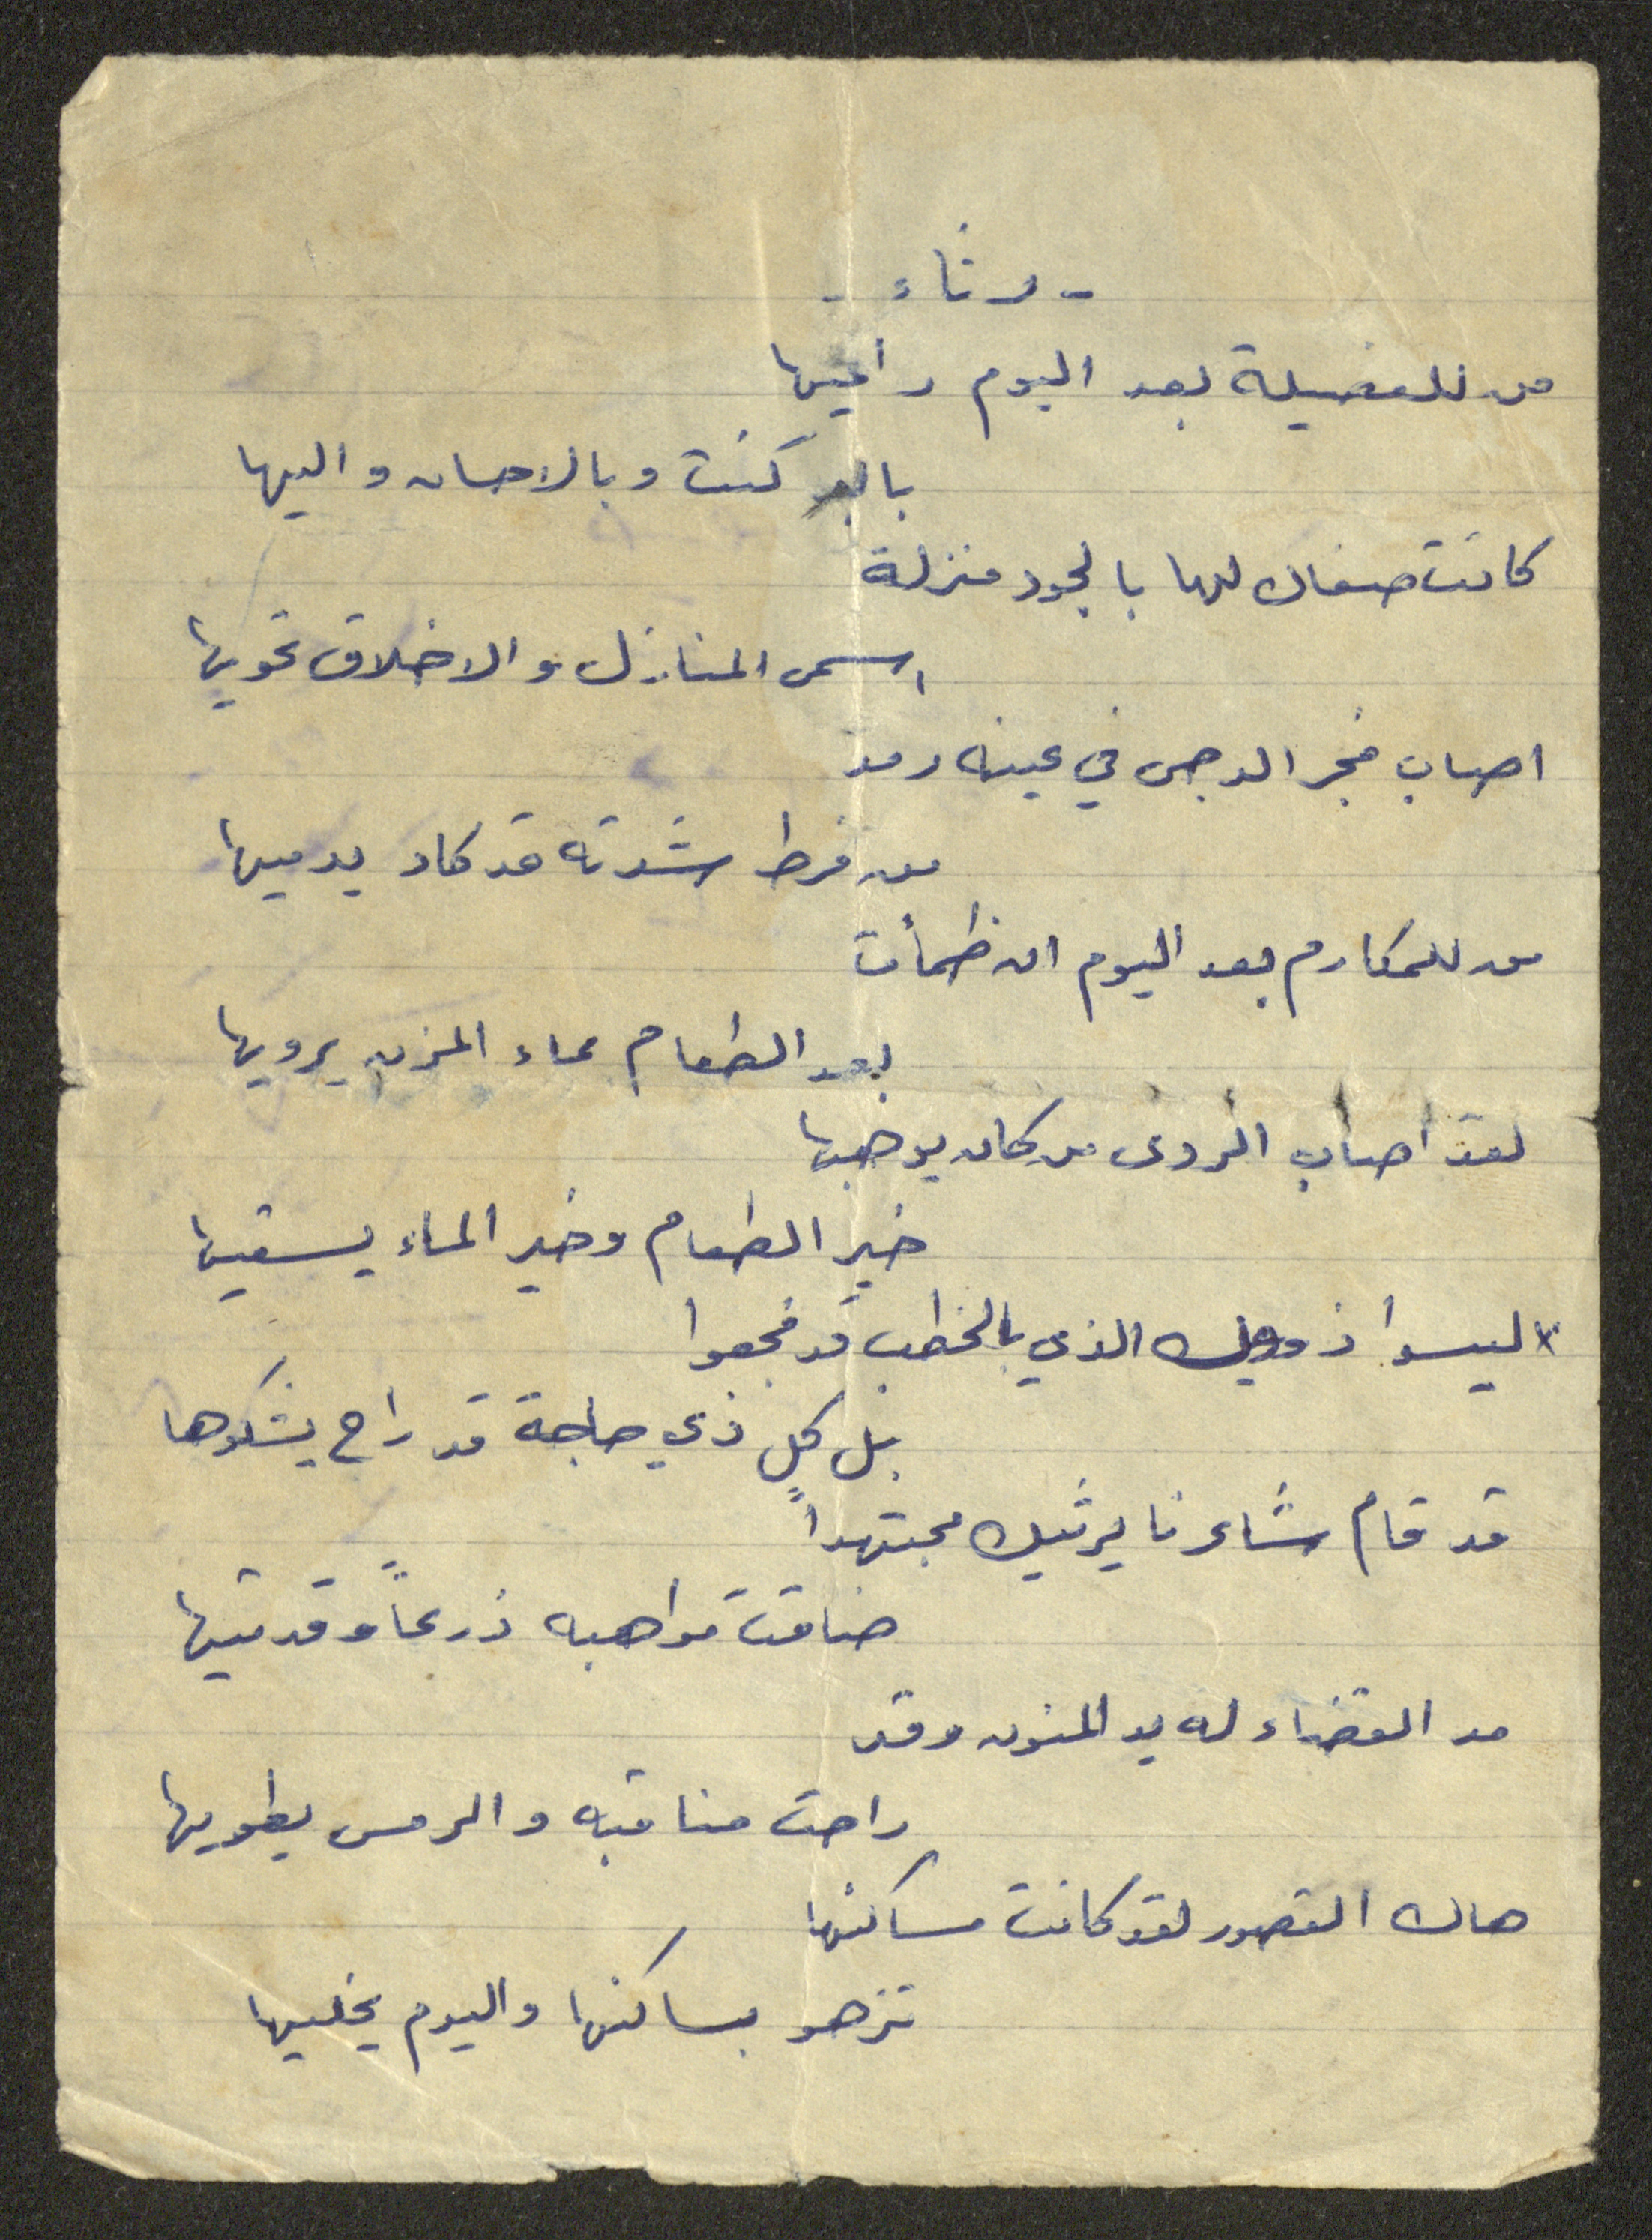 - رثاء -
من للفضيلة بعد اليوم راعيها
بالبر كنت وبالاحسان واليها
كانت صفاك لها بالجود منزلة
اسمى المنازل والاخلاق تحويها
اصاب فجر الدجى في عينه رمد
من فرط شدته قد كاد يدميها
من للمكارم بعد اليوم ان ظمأت
بعد الطعام بماء المزن يرويها
لقد اصاب الردى من كان يوهبها
خير الطعام وخير الماء يسقيها
ليسوا ذوويك الذي بالخطب قد فجعوا
بل كل ذي حاجة قد راح يشكوها
قد قام شاعرنا يرثيك مجتهداً
ضاقت مواهبه ذرعاً وقد تيها
مد القضاء له يد المنون وقد
راحت مناقبه والرمس يطويها
هاك القصور لقد كانت مساكنها
تزهو بساكنها واليوم يخليها